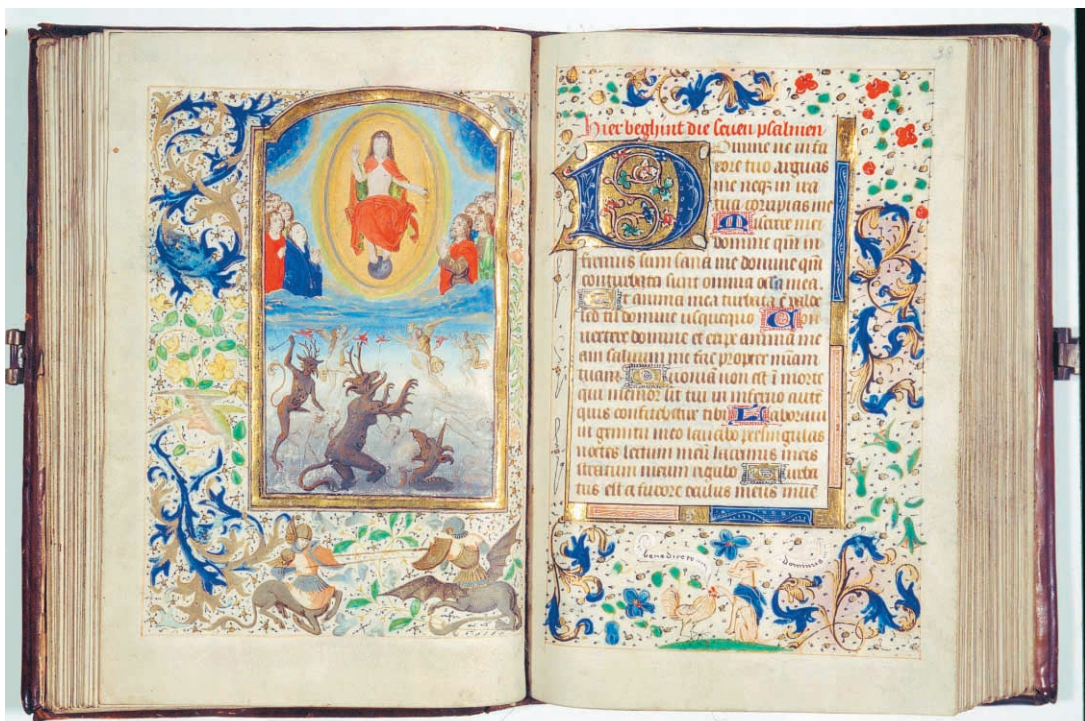 38
hier beghint die seuen psalmen
Domine ne in fu
rore tuo arguas
me neqz in ira
tua corripias me
Miserere mei
domine qm̄ in
firmus sum sana me domine qm̄
conturbata sunt omnia ossa mea.
Et anima mea turbata ē valde
sed tu domine usquequo Con
uertere domine et eripe animā me
am saluum me fac propter miām
tuam Qūoniā non est ī morte
qui memor sit tui in inferno autē
quis confitebitur tibi Laboraui
in gemitu meo lauabo per singulas
noctes lectum meū lacrimis meis
stratum meum rigabo Turba
tus est a furore oculus meus
benedicete
dominus